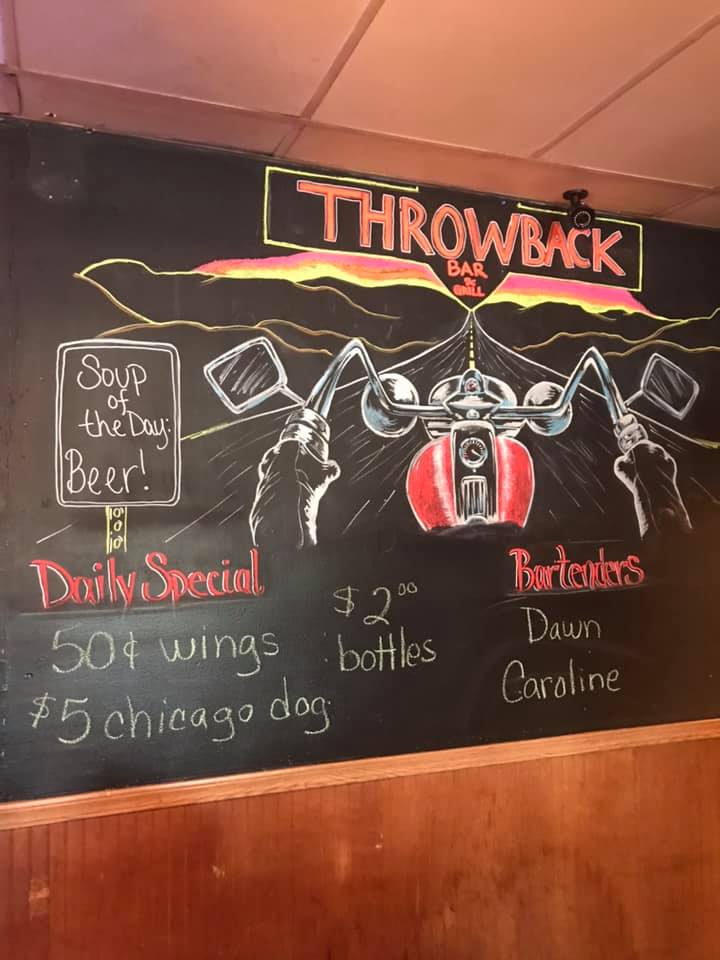 THROWBACK
BAR
&
GRILL
Soup
of
the Day:
Beer!
Daily Special
50¢ wings
$5 chicago dog
$2.00
bottles
Bartenders
Dawn
Caroline